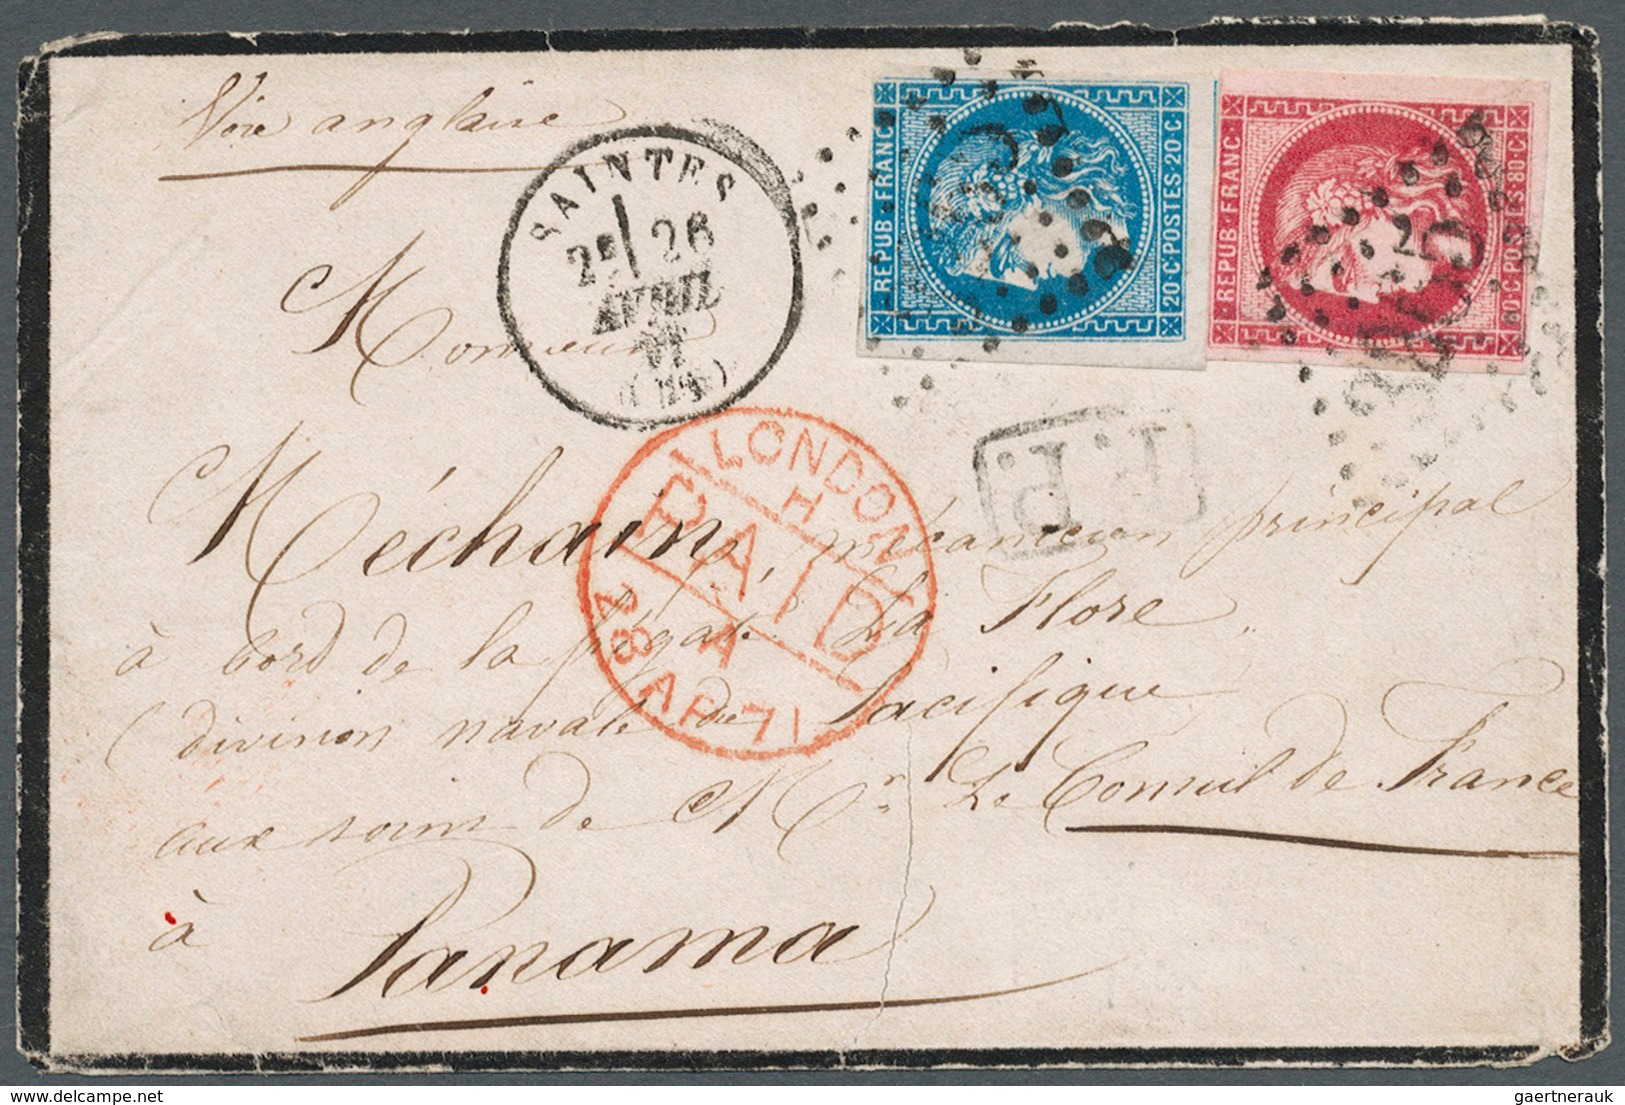 Voie anglaise
SAINTES
26
AVRIL
71
REPUB·FRANC
20·C·POSTES·20·C
REPUB·FRANC
80·C·POSTES·80·C
P.P.
LONDON
H
PAID
A
28 AP 71
Monsieur
Méchain, mécanicien principal
à bord de la frégate La Flore
(division navale du Pacifique
aux soins de Mr. Le Consul de France
à Panama
gaertnerauk